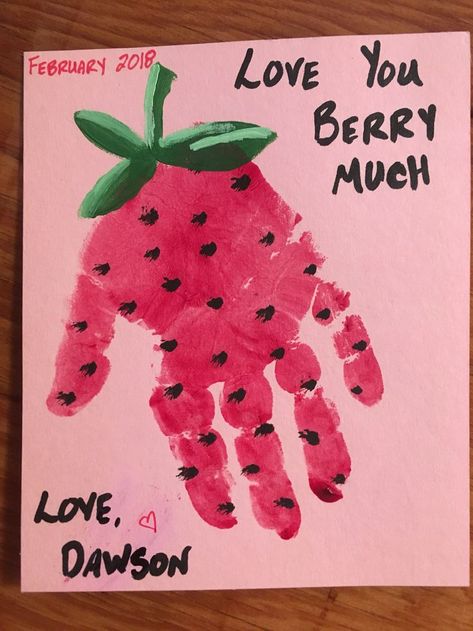 February 2018
Love You
Berry
Much
Love,
Dawson